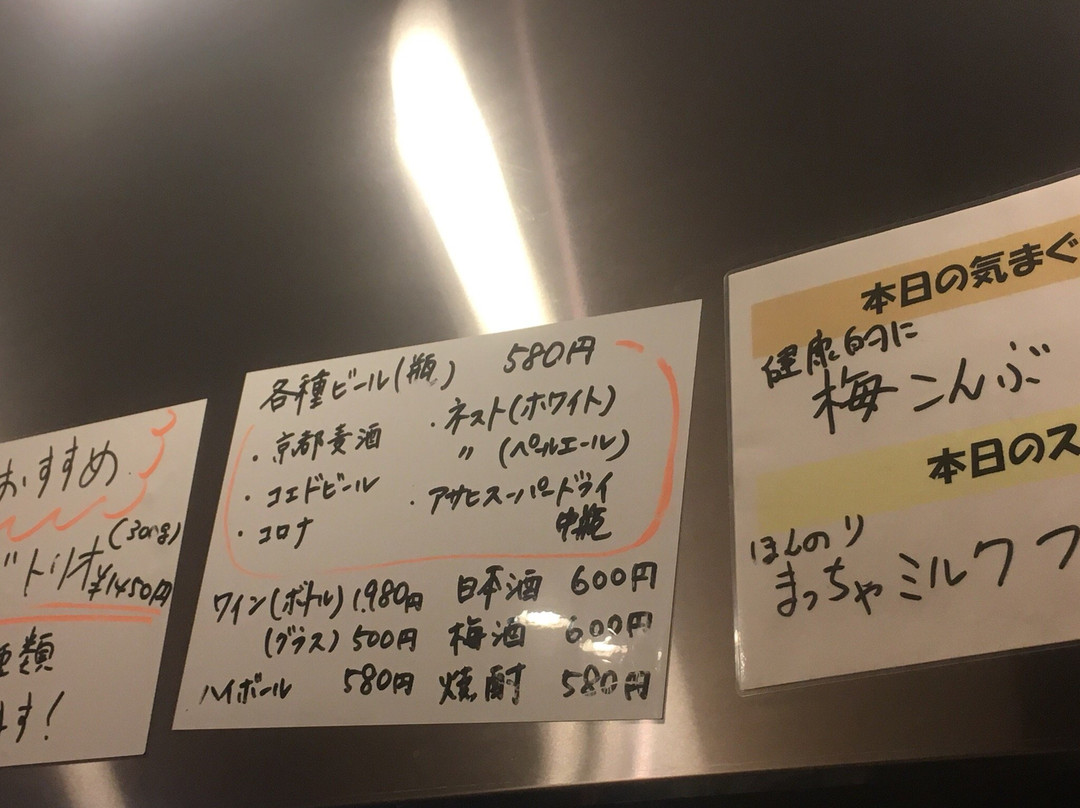 おすすめ
トリオ (300g)
¥1450円
種類
ます!
各種ビール(瓶) 580円
・京都麦酒
・コエドビール
・コロナ
・ネスト(ホワイト)
〃 (ペールエール)
・アサヒスーパードライ
中瓶
ワイン(ボトル) 1,980円
(グラス) 500円
ハイボール 580円
日本酒 600円
梅酒 600円
焼酎 580円
本日の気まぐ
健康的に
梅こんぶ
本日のス
ほんのり
まっちゃミルクフ